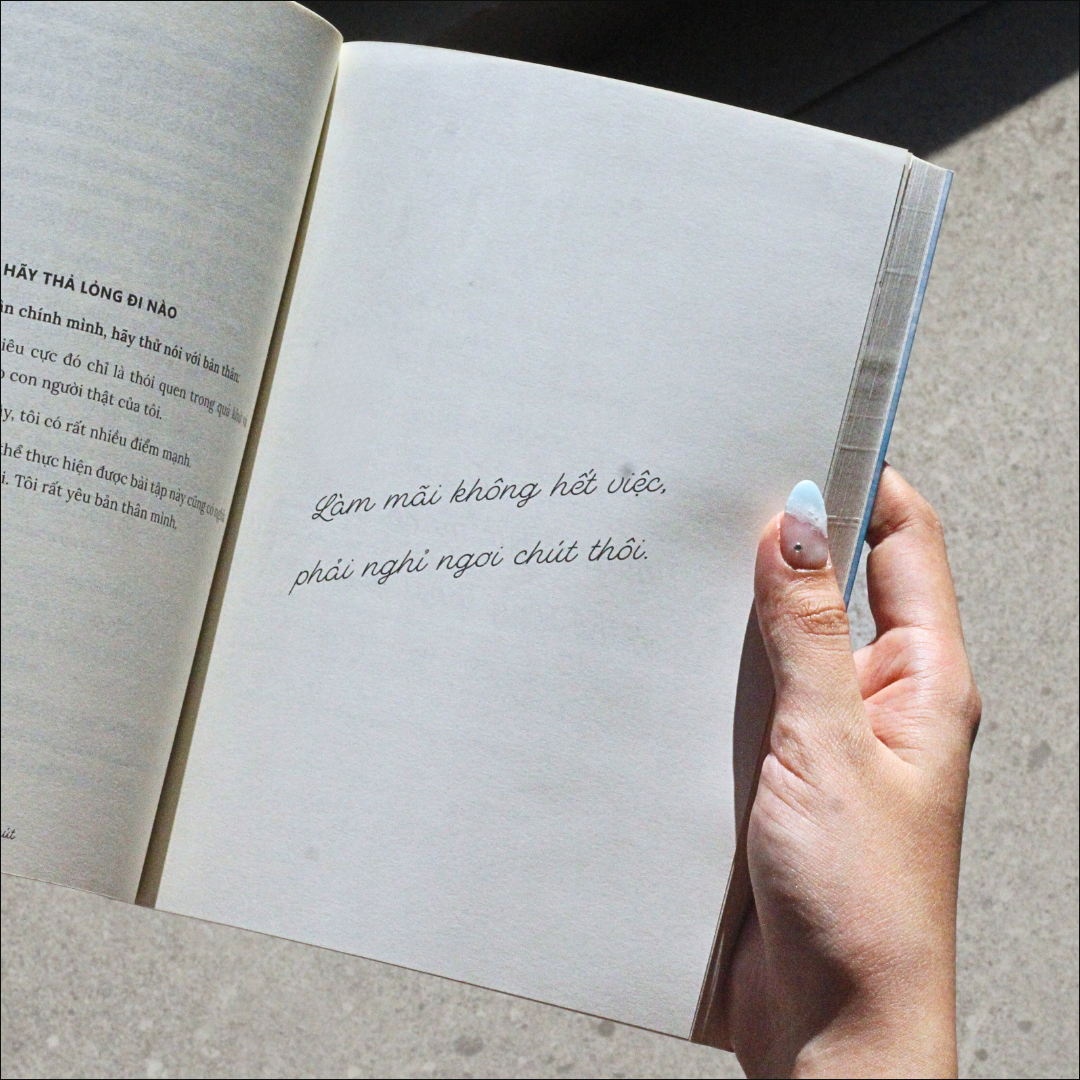 HÃY THẢ LỎNG ĐI NÀO
chính mình, hãy thử nói với bản thân:
cực đó chỉ là thói quen trong quá khứ
con người thật của tôi.
tôi có rất nhiều điểm mạnh.
thể thực hiện được bài tập này cũng có nghĩa
Tôi rất yêu bản thân mình.
Làm mãi không hết việc,
phải nghỉ ngơi chút thôi.